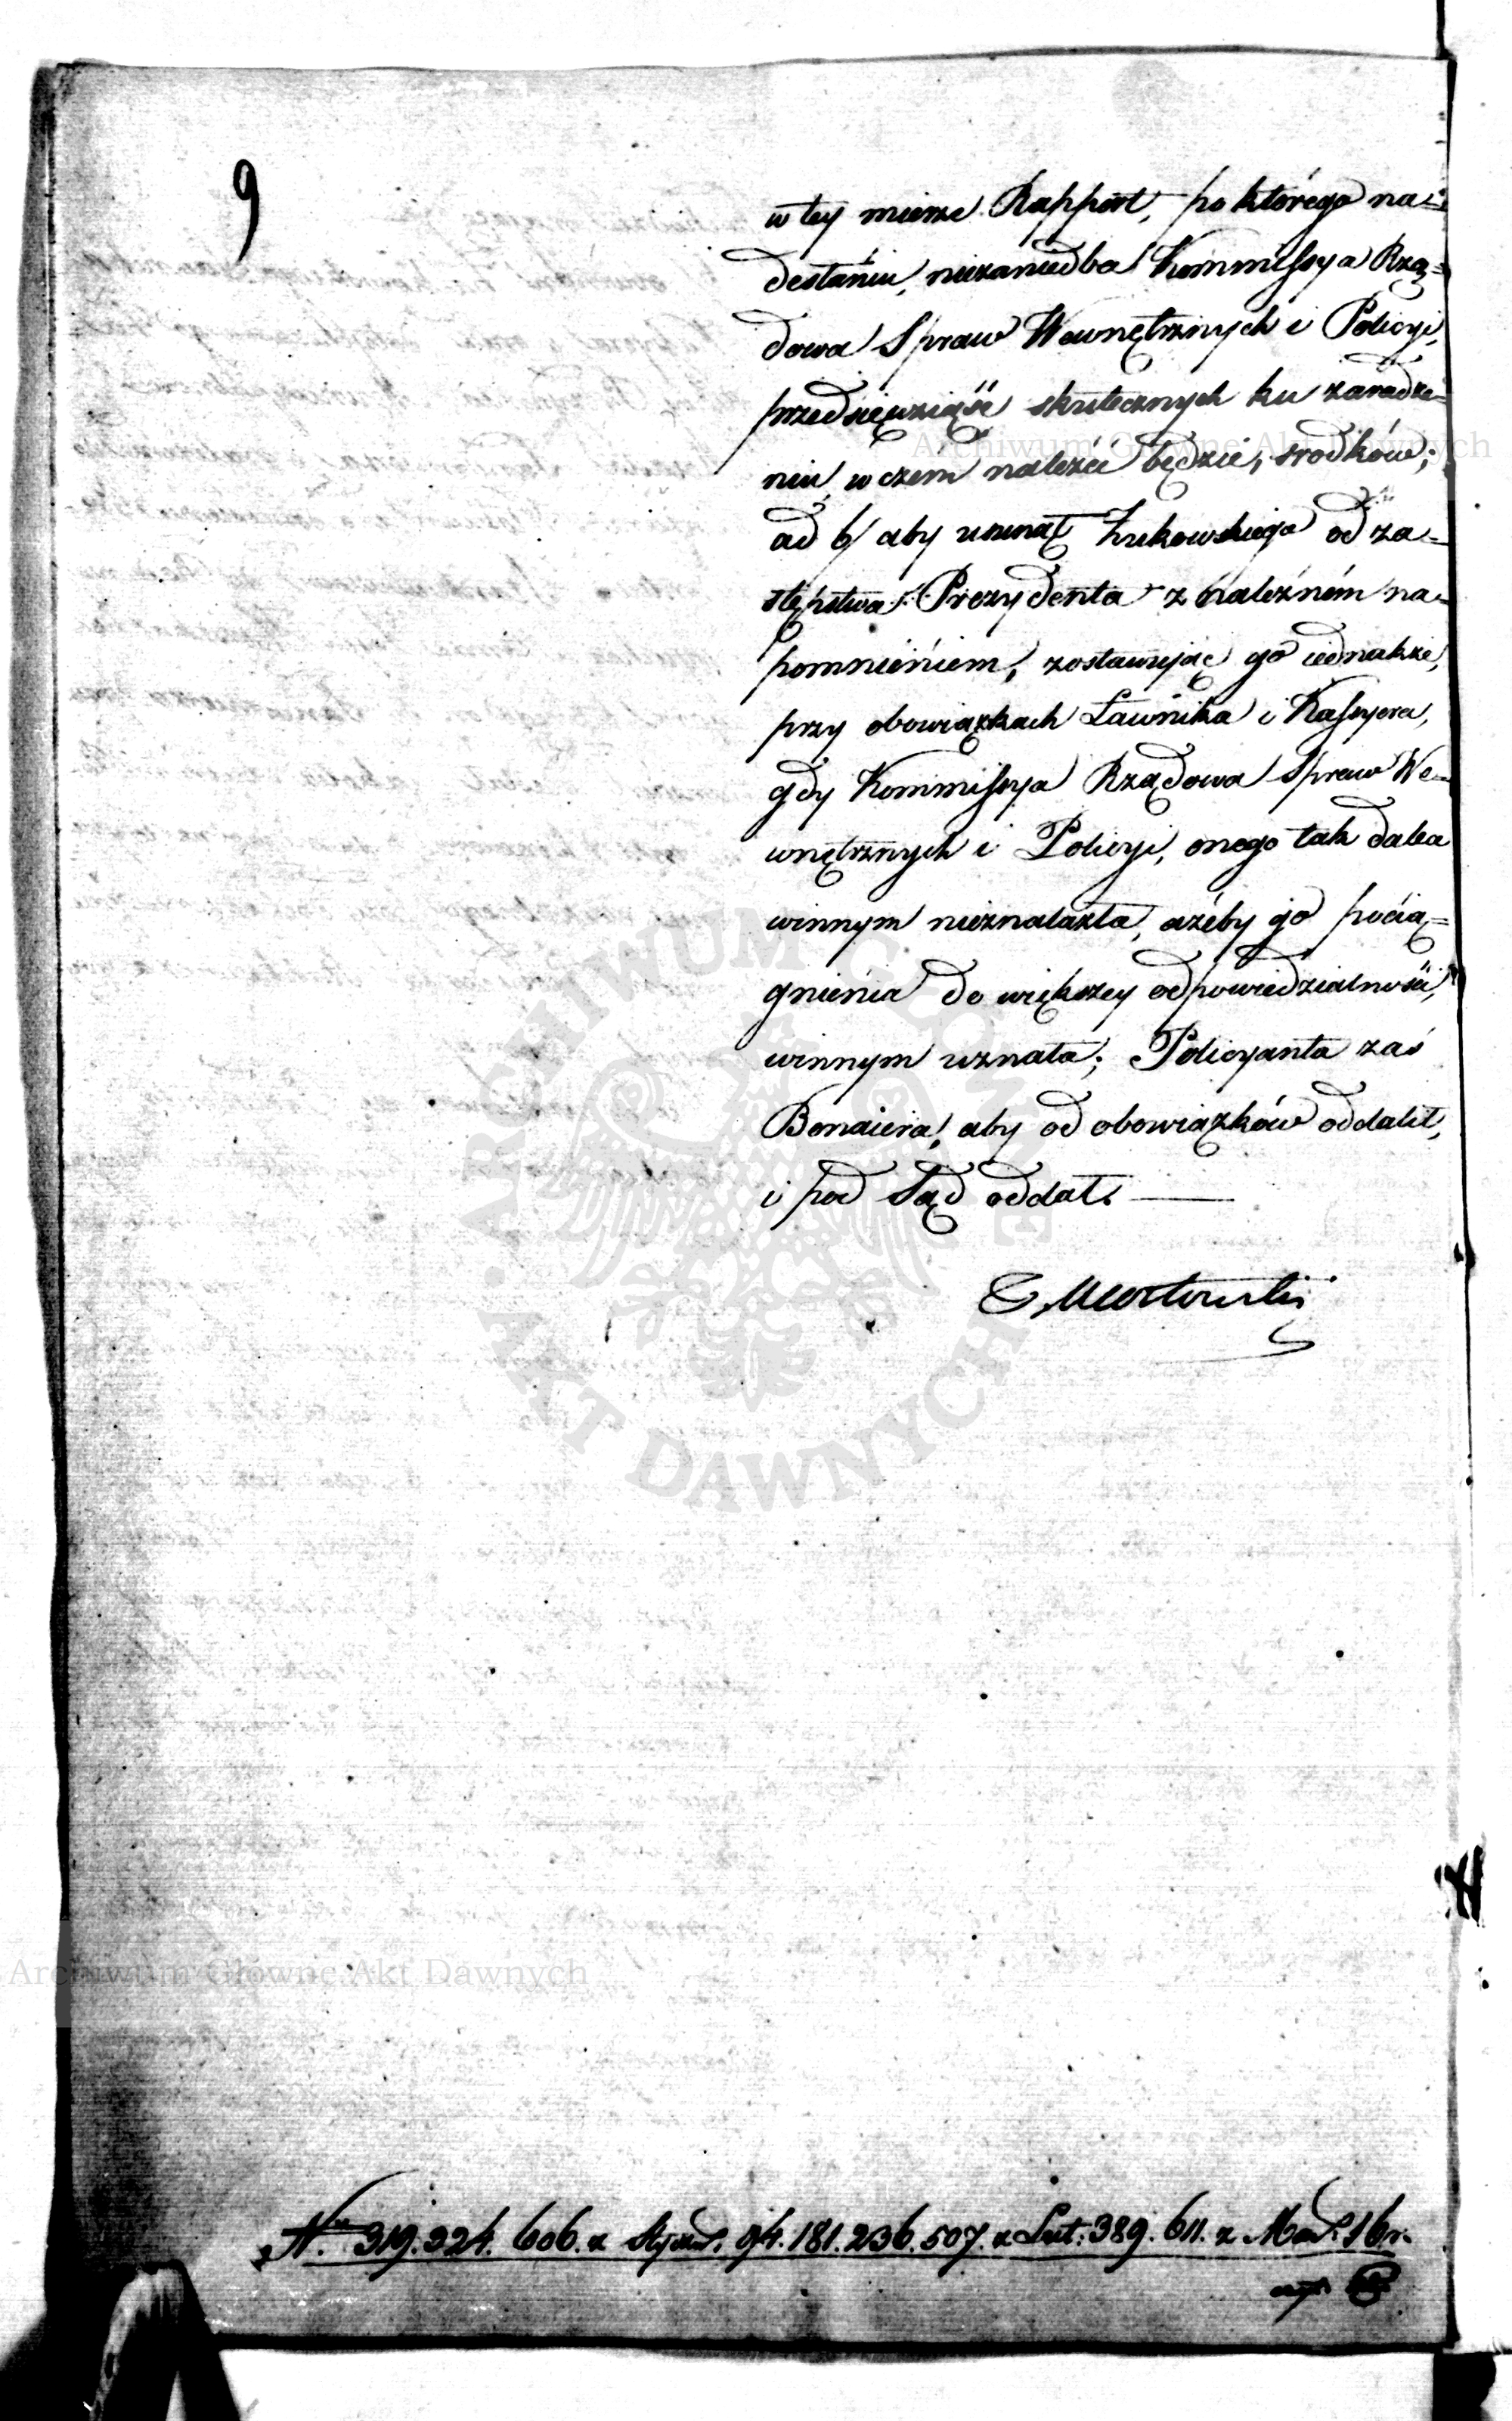 9
w tey mierze Rapport, po którego na=
desłaniu, niezaniedba Kommissya Rzą=
dowa Spraw Wewnętrznych i Policyi,
przedsięwziąść skutecznych ku zaradze=
niu, w czem należeć będzie, srodków;
ad b/ aby usunął Żukowskiego od za=
stępstwa Prezydenta z należném na=
pomnieniem, zostawując go iednakże,
przy obowiązkach Ławnika i Kassyera,
gdy Kommissya Rządowa Spraw We=
wnętrznych i Policyi, onego tak dalea
winnym nieznalazła, ażeby go pocią=
gnienia do większey odpowiedzialności,
winnym uznała; Policyanta zaś
Bonaiera, aby od obowiązków oddalił,
i pod Sąd oddał.
N. 319. 324. 606. z Stycz. 94. 181. 236. 507. z Lut. 389. 611. z Mar. 16 r.
Archiwum Główne Akt Dawnych
Archiwum Główne Akt Dawnych
ARCHIWUM GŁÓWNE AKT DAWNYCH